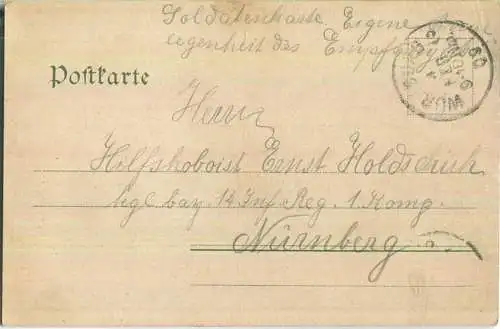 Soldatenkarte Eigene Ange-
legenheit des Empfängers
Postkarte
Herrn
Hilfshoboist Ernst
kgl. bay. 14. Inf. Reg. 1. Komp.
Nürnberg